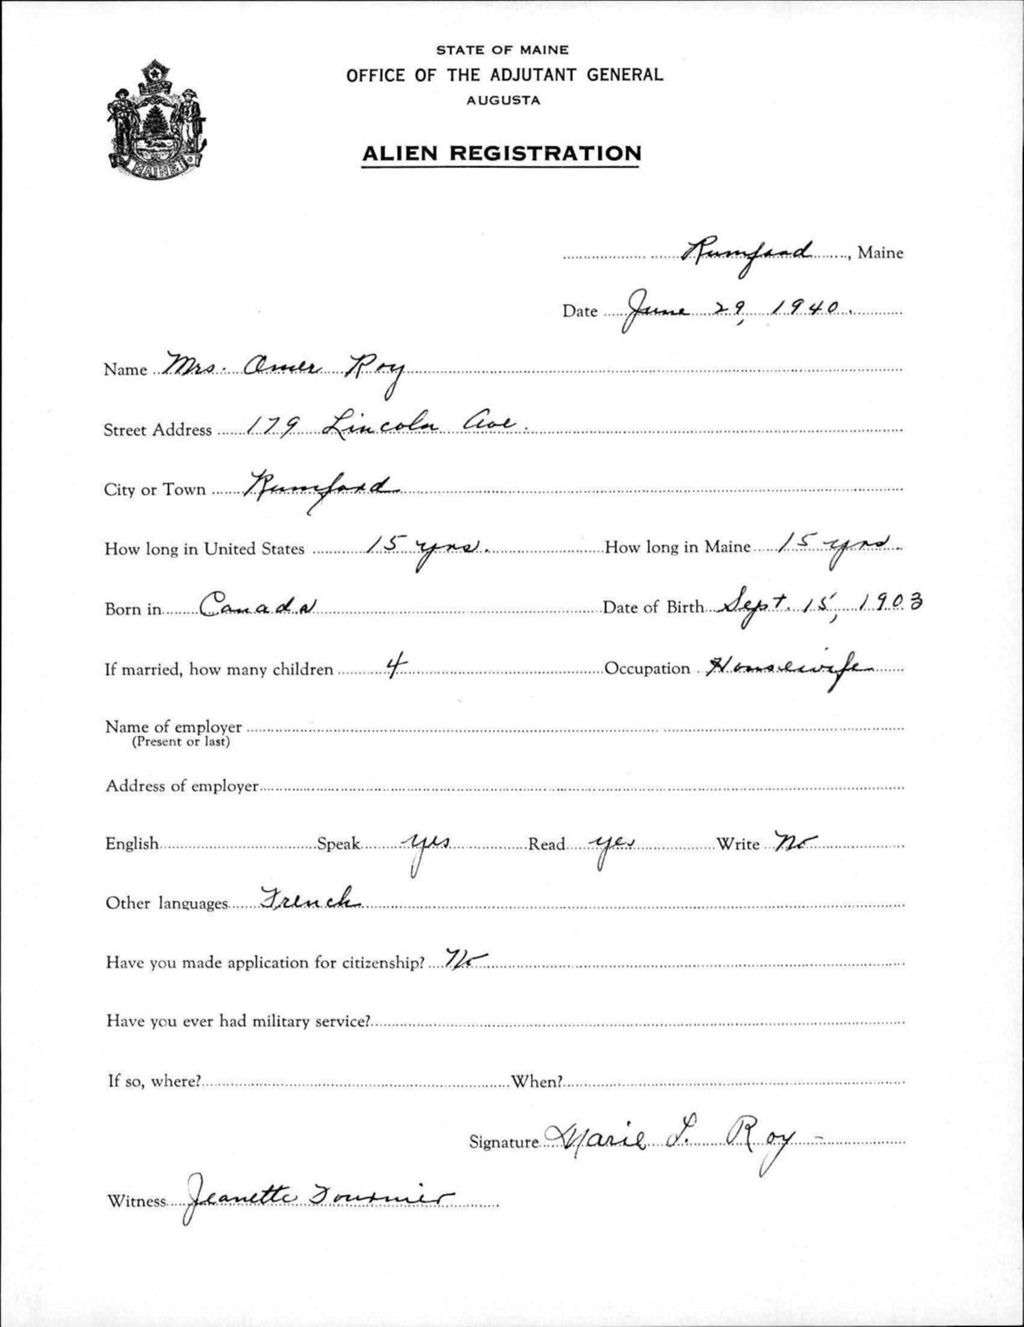 STATE OF MAINE
OFFICE OF THE ADJUTANT GENERAL
AUGUSTA
ALIEN REGISTRATION
MAINE
Rumford, Maine
Date June 29, 1940.
Name Mrs. Omer Roy
Street Address 179 Lincoln Ave.
City or Town Rumford
How long in United States 15 yrs. How long in Maine 15 yrs.
Born in Canada Date of Birth Sept. 15, 1903
If married, how many children 4 Occupation Housewife
Name of employer
(Present or last)
Address of employer
English Speak yes Read yes Write No
Other languages French
Have you made application for citizenship? No
Have you ever had military service?
If so, where? When?
Signature Marie L. Roy -
Witness Jeanette Fournier